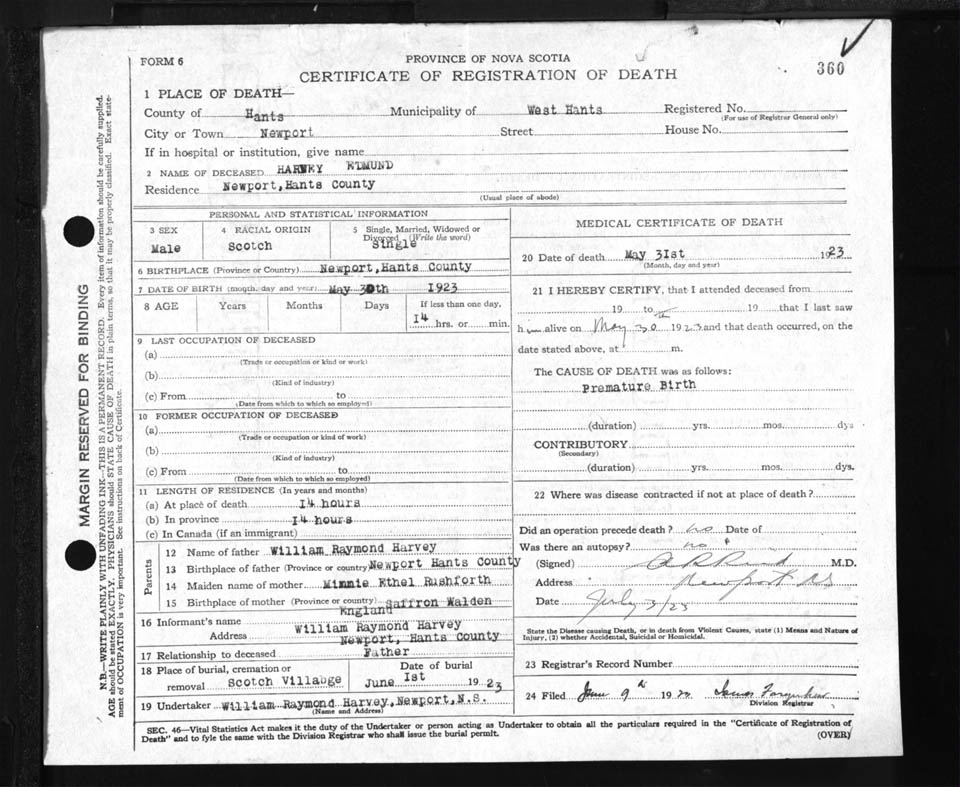 FORM 6
PROVINCE OF NOVA SCOTIA
CERTIFICATE OF REGISTRATION OF DEATH
360
1 PLACE OF DEATH—
County of Hants Municipality of West Hants Registered No.
(For use of Registrar General only)
City or Town Newport Street House No.
If in hospital or institution, give name
2 NAME OF DECEASED HARVEY EDMUND
Residence Newport, Hants County
(Usual place of abode)
PERSONAL AND STATISTICAL INFORMATION
3 SEX
Male
4 RACIAL ORIGIN
Scotch
5 Single, Married, Widowed or
Divorced (Write the word)
Single
6 BIRTHPLACE (Province or Country) Newport, Hants County
7 DATE OF BIRTH (month, day and year) May 30th 1923
8 AGE Years Months Days If less than one day,
14 hrs. or min.
9 LAST OCCUPATION OF DECEASED
(a)
(Trade or occupation or kind or work)
(b)
(Kind of industry)
(c) From to
(Date from which to which so employed)
10 FORMER OCCUPATION OF DECEASED
(a)
(Trade or occupation or kind of work)
(b)
(Kind of industry)
(c) From to
(Date from which to which so employed)
11 LENGTH OF RESIDENCE (In years and months)
(a) At place of death 14 hours
(b) In province 14 hours
(c) In Canada (if an immigrant)
Parents
12 Name of father William Raymond Harvey
13 Birthplace of father (Province or country) Newport Hants County
14 Maiden name of mother Minnie Ethel Rushforth
15 Birthplace of mother (Province or country) Saffron Walden
England
16 Informant's name William Raymond Harvey
Address Newport, Hants County
17 Relationship to deceased Father
18 Place of burial, cremation or
removal Scotch Villabge
Date of burial
June 1st 1923
19 Undertaker William Raymond Harvey, Newport, N.S.
(Name and Address)
MEDICAL CERTIFICATE OF DEATH
20 Date of death May 31st 1923
(Month, day and year)
21 I HEREBY CERTIFY, that I attended deceased from
19 to 19 that I last saw
him alive on May 30th 1923 and that death occurred, on the
date stated above, at m.
The CAUSE OF DEATH was as follows:
Premature Birth
(duration) yrs. mos. dys
CONTRIBUTORY
(Secondary)
(duration) yrs. mos. dys.
22 Where was disease contracted if not at place of death?
Did an operation precede death? no Date of
Was there an autopsy? no
(Signed) M.D.
Address Newport NS
Date July 3/23
State the Disease causing Death, or in death from Violent Causes, state (1) Means and Nature of
Injury, (2) whether Accidental, Suicidal or Homicidal.
23 Registrar's Record Number
24 Filed June 9th 19
Division Registrar
SEC. 46—Vital Statistics Act makes it the duty of the Undertaker or person acting as Undertaker to obtain all the particulars required in the "Certificate of Registration of
Death" and to fyle the same with the Division Registrar who shall issue the burial permit.
(OVER)
MARGIN RESERVED FOR BINDING
N.B.—WRITE PLAINLY WITH UNFADING INK—THIS IS A PERMANENT RECORD. Every item of information should be carefully supplied.
AGE should be stated EXACTLY. PHYSICIANS should STATE CAUSE OF DEATH in plain terms, so that it may be properly classified. Exact state-
ment of OCCUPATION is very important. See instructions on back of Certificate.